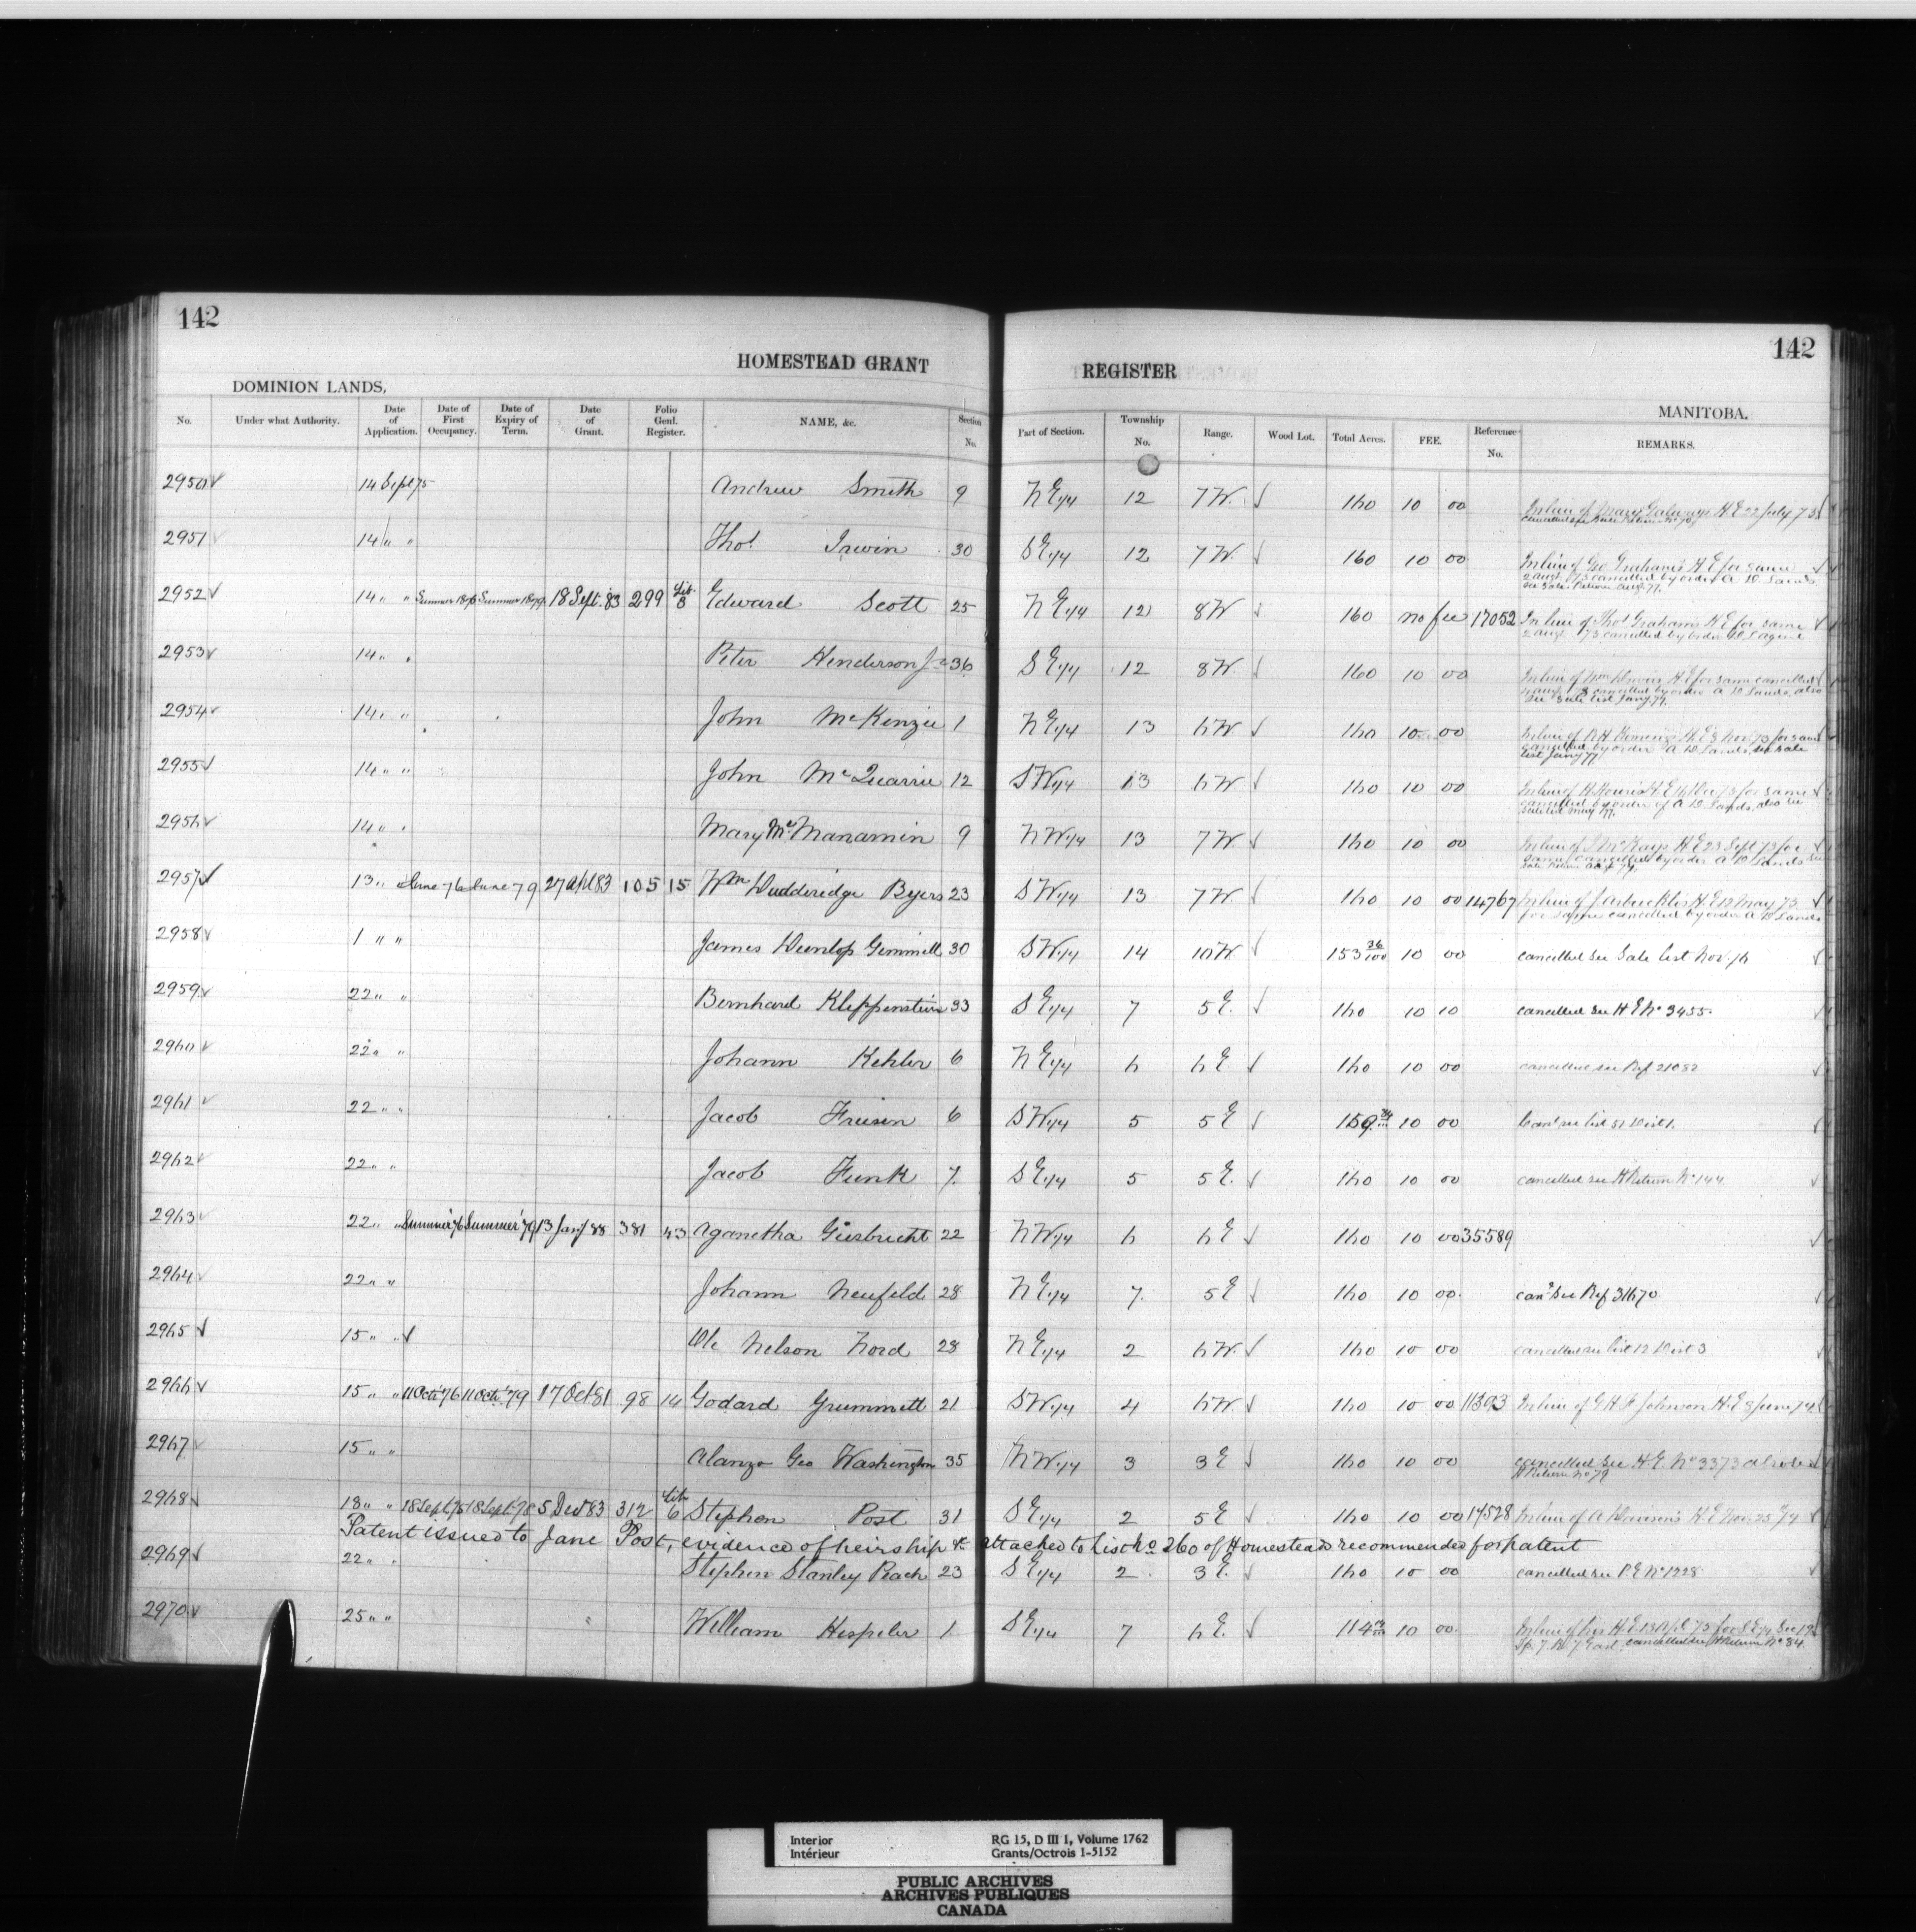 142
142
HOMESTEAD GRANT REGISTER
DOMINION LANDS,
MANITOBA.
No. Under what Authority. Date of Application. Date of First Occupancy. Date of Expiry of Term. Date of Grant. Folio Genl. Register. NAME, &c. Section No. Part of Section. Township No. Range. Wood Lot. Total Acres. FEE. Reference No. REMARKS.
2950 14 Sept 75 Andrew Smith 9 N E 1/4 12 7 W. 160 10 00 In lieu of Mary Galways H E 22 July 73
2951 14 " " Thos Irwin 30 S E 1/4 12 7 W. 160 10 00 In lieu of Geo Grahams H E for same
2 augt 73 cancelled by order A D Lands
see Sale Return Augt 77.
2952 14 " " Summer 1876 Summer 1879 18 Sept. 83 299 Lib. 8 Edward Scott 25 N E 1/4 12 8 W 160 no fee 17052 In lieu of Thos Grahams H E for same
2 augt 73 cancelled by order
2953 14 " " Peter Henderson Jr 36 S E 1/4 12 8 W. 160 10 00 In lieu of Wm H E for same cancelled
cancelled by order A D Lands, also
see Sale List Jany 77.
2954 14 " " John McKenzie 1 N E 1/4 13 6 W. 160 10 00 In lieu of H E 8 Nov. 73 for same
cancelled by order A D Lands see Sale
List Jany 77
2955 14 " " John McQuarrie 12 S W 1/4 13 6 W. 160 10 00 In lieu of H E 16 Dec 73 for same
cancelled by order of A D Lands, also see
Sale List May 77.
2956 14 " " Mary McManamin 9 N W 1/4 13 7 W. 160 10 00 In lieu of J McKays H E 23 Sept 73 for
same cancelled by order A D Lands see
2957 13 " June 76 June 79 27 Apl 83 105 15 Wm Dudderidge Byers 23 S W 1/4 13 7 W. 160 10 00 14767 In lieu of J Arbuckles H E 12 May 73
for same cancelled by order A D Lands
2958 1 " " James Dunlop Gemmell 30 S W 1/4 14 10 W. 153 36/100 10 00 cancelled see Sale List Nov. 76
2959 22 " " Bernhard Kleppenstein 33 S E 1/4 7 5 E. 160 10 10 cancelled see H E No 3455.
2960 22 " " Johann Kehler 6 N E 1/4 6 6 E 160 10 00 cancelled see Ref 21082
2961 22 " " Jacob Friesen 6 S W 1/4 5 5 E 159 10 00 Canc see list 51 Dist 1.
2962 22 " " Jacob Funk 7. S E 1/4 5 5 E. 160 10 00 cancelled see H Return No 144
2963 22 " " Summer '76 Summer '79 13 Jany 88 381 43 Aganetha Giesbrecht 22 N W 1/4 6 6 E 160 10 00 35589
2964 22 " " Johann Neufeld 28 N E 1/4 7. 5 E 160 10 00. canc see Ref 31670
2965 15 " " Ole Nelson Nord 28 N E 1/4 2 6 W. 160 10 00 cancelled see list 12 Dist 3
2966 15 " " 11 Oct. '76 11 Oct. '79 17 Oct 81 98 14 Godard Grummett 21 S W 1/4 4 6 W. 160 10 00 11393 In lieu of G H F Johnson H.E. 8 June 74
2967 15 " " Alanzo Geo Washington 35 N W 1/4 3 3 E 160 10 00 cancelled see H.E. No 3373 also see
H Return No 79
2968 18 " " 18 Sept. 75 18 Sept. 78 5 Dec 83 312 Lib 6 Stephen Post 31 S E 1/4 2 5 E 160 10 00 17528 In lieu of A Dawson's H E Nov. 25 74
Patent issued to Jane Post, evidence of heirship &c attached to List No 260 of Homesteads recommended for patent
2969 22 " " Stephen Stanley Peach 23 S E 1/4 2. 3 E. 160 10 00 cancelled see P.E No 1228
2970 25 " " William Hespeler 1 S E 1/4 7 6 E. 114 10 00. In lieu of his H.E. 13 Apl 75 for S E 1/4 Sec 19
Tp. 7. R 7 East cancelled see H Return No 84.
Interior
Intérieur
RG 15, D III 1, Volume 1762
Grants/Octrois 1-5152
PUBLIC ARCHIVES
ARCHIVES PUBLIQUES
CANADA